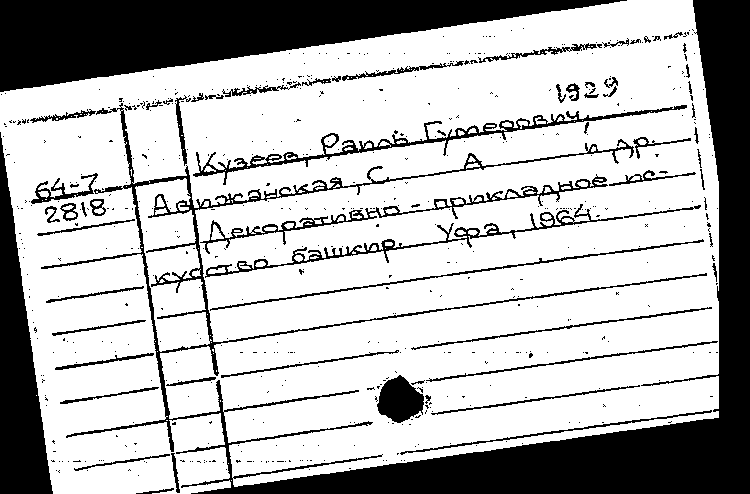 1929
Кузеев, Раиль Гумерович,
64-7
2818
Авижанская, С. А и др.
Декоративно - прикладное ис-
кусство башкир. Уфа, 1964.